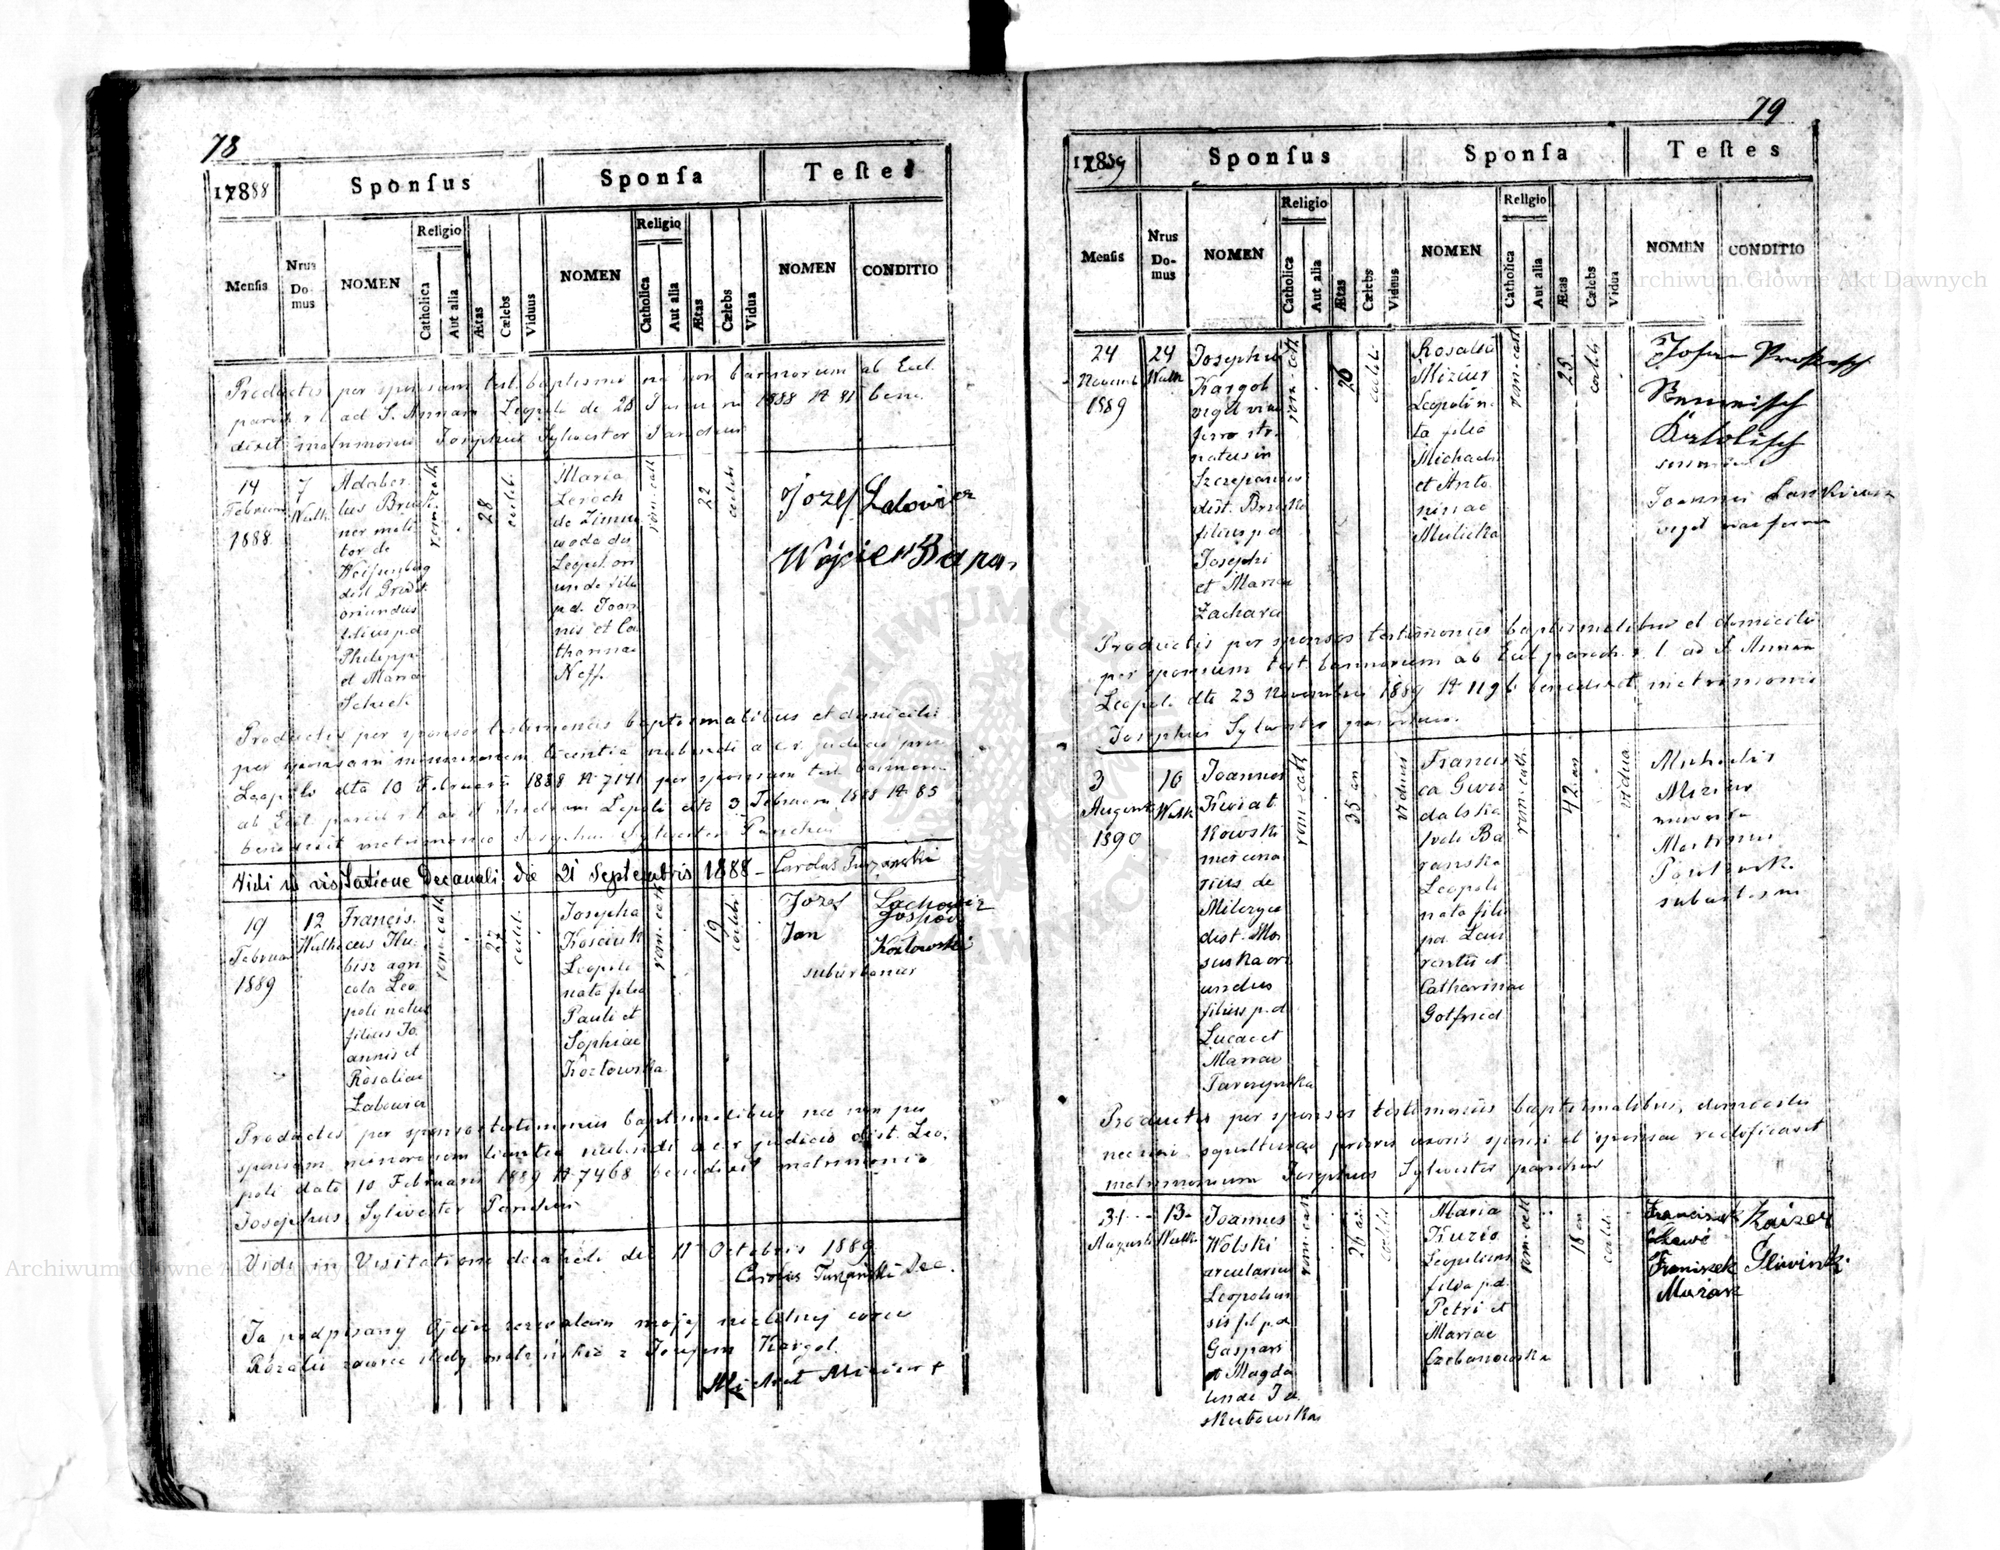 78
17888
Sponsus
Sponsa
Testes
Mensis
Nrus Domus
NOMEN
Religio
Catholica
Aut alia
Ætas
Cælebs
Viduus
NOMEN
Religio
Catholica
Aut alia
Ætas
Cælebs
Vidua
NOMEN
CONDITIO
Productis per sponsam test. baptismi nec non bannorum ab Eccl.
paroch r l ad S. Annam Leopoli de 28 Januarii 1888 N 81 bene
dixit matrimonio Josephus Sylvester Parochus
14
Februar
1888
7
Wulk
Adalber
tus
ner moli
tor de
Weissenberg
dist Grodek
oriundus
filius p.d
Philippi
et Maria
Schick
rom. cath
28
caelebs
Maria
Leroch
de Zimna
woda dis
Leopol. ori
unda filia
p.d. Joan
nis et Ca
tharina
Neff.
rom. cath
22
caelebs
Jozef
Wojciech
Productis per sponsos testimoniis baptismalibus et domicilii
per sponsam minorenem licentia nubendi a c.r. judicio
Leopoli dto 10 Februarii 1888 N 7141 per sponsum test. bannoru
ab Eccl. paroch r.l. ad S Andream Leopoli dto 3 Februarii 1888 N 85
benedixit matrimonio Josephus Sylvester Parochus
Vidi in visitatione Decanali die 21 Septembris 1888 - Carolus Turzanski
19
Februar
1889
12
Wulka
Francis
cus Ku
bisz agri
cola Leo
poli natus
filius Jo
annis et
Rosaliae
Zabawa
rom. cath
27
caeleb.
Josepha
Kosciuk
Leopoli
nata filia
Pauli et
Sophiae
Kozlowska
rom. cath
19
caelebs
Jozef Lachowicz
Gospod
Jan Kozlowski
suburbanus
Productis per sponsos testimoniis baptismalibus nec non per
sponsam minorenem licentia nubendi a c r judicio dist. Leo,
poli dato 10 Februarii 1889 N 7468 benedixit matrimonio
Josephus Sylvester Parochus
Vidi in Visitatione decanali die 11 Octobris 1889
Carolus Turzański Dec.
Ja podpisany Ojciec zezwalam mojej nieletniej corce
Rozalii zawrzec sluby malzeńskie z Jozefem Kargol.
Michał Mizior +
79
17889
Sponsus
Sponsa
Testes
Mensis
Nrus Domus
NOMEN
Religio
Catholica
Aut alia
Ætas
Cælebs
Viduus
NOMEN
Religio
Catholica
Aut alia
Ætas
Cælebs
Vidua
NOMEN
CONDITIO
24
Novemb
1889
24
Wulk
Josephus
Kargol
vigil viae
ferro str.
natus in
Szczepanów
dist. Brzesko
filius p.d
Josephi
et Maria
Zachara
rom-cath
26
caeleb.
Rosalia
Mizior
Leopoli n.
ta filia
Michaelis
et Anto
ninae
Mulicka
rom-cath
25
caelebs
Johan
Katolisch
Joannes
vigil viae ferrea
Productis per sponsos testimoniis baptismalibus et domicilii
per sponsum test. bannorum ab Eccl. paroch. r. l ad S Annam
Leopoli dto 23 Novembris 1889 N 1196 benedixit matrimonio
Josephus Sylvester parochus.
3
Augusti
1890
16
Wulk
Joannes
Kwiat
kowski
mercena
rius de
Milczyce
dist. Mo
sciska ori
undus
filius p.d
Lucae et
Mariae
Tarczynska
rom-cath
35 an
viduus
Francis
ca Gwi
dalska
1voto Ba
ranska
Leopoli
nata filia
p.d. Lau
rentii et
Catharinae
Gotfried
rom-cath
42 an
vidua
Michaelis
Mizior
Martinus
Productis per sponsos testimoniis baptismalibus, domicilii
nec non sepulturae prioris uxoris sponsi et sponsae
matrimonium Josephus Sylvester parochus
31
Augusti
13
Wulk
Joannes
Wolski
arcularius
Leopolien
sis fil p.d
Gaspari
et Magda
lenae Ja
skulowska
rom-cath
26 an
caelebs
Maria
Kuzio
Leopoliens
filia p.d
Petri et
Mariae
Czebanowska
rom-cath
18 an
caeleb.
Franciszek Kaizer
Franciszek Śliwinski
Murarz
Archiwum Główne Akt Dawnych
Archiwum Główne Akt Dawnych